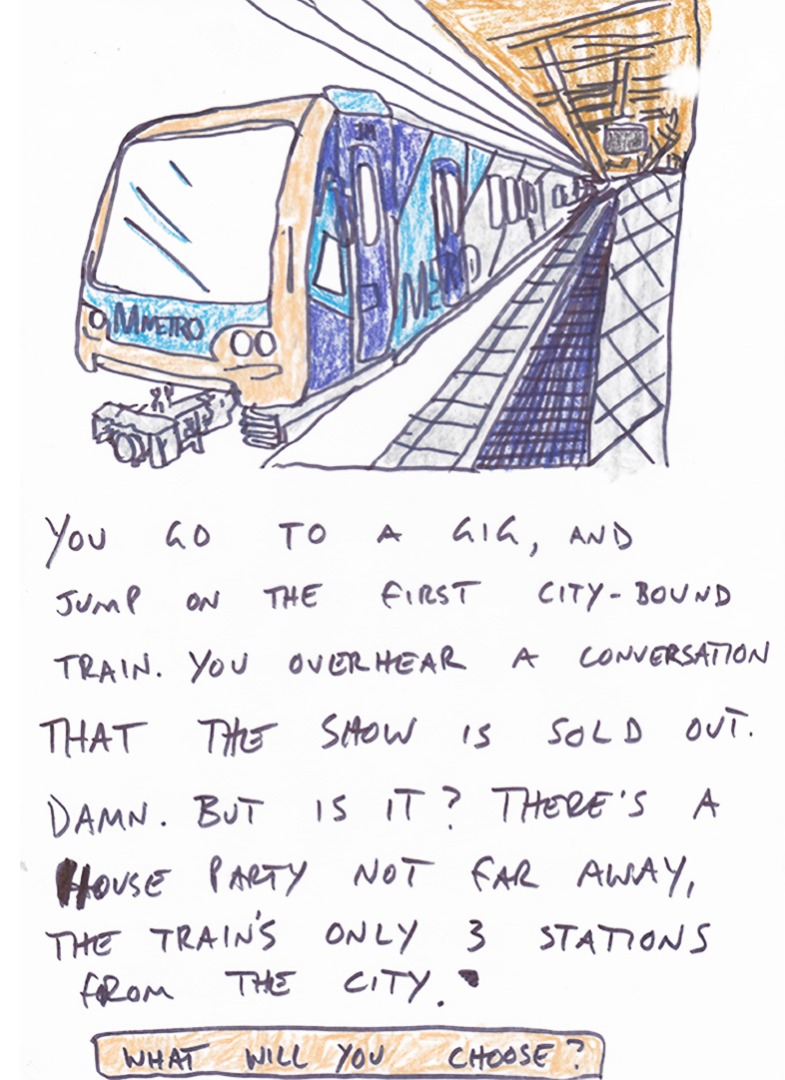 MMETRO
METRO
YOU GO TO A GIG, AND
JUMP ON THE FIRST CITY-BOUND
TRAIN. YOU OVERHEAR A CONVERSATION
THAT THE SHOW IS SOLD OUT.
DAMN. BUT IS IT? THERE'S A
HOUSE PARTY NOT FAR AWAY,
THE TRAIN'S ONLY 3 STATIONS
FROM THE CITY.
WHAT WILL YOU CHOOSE?